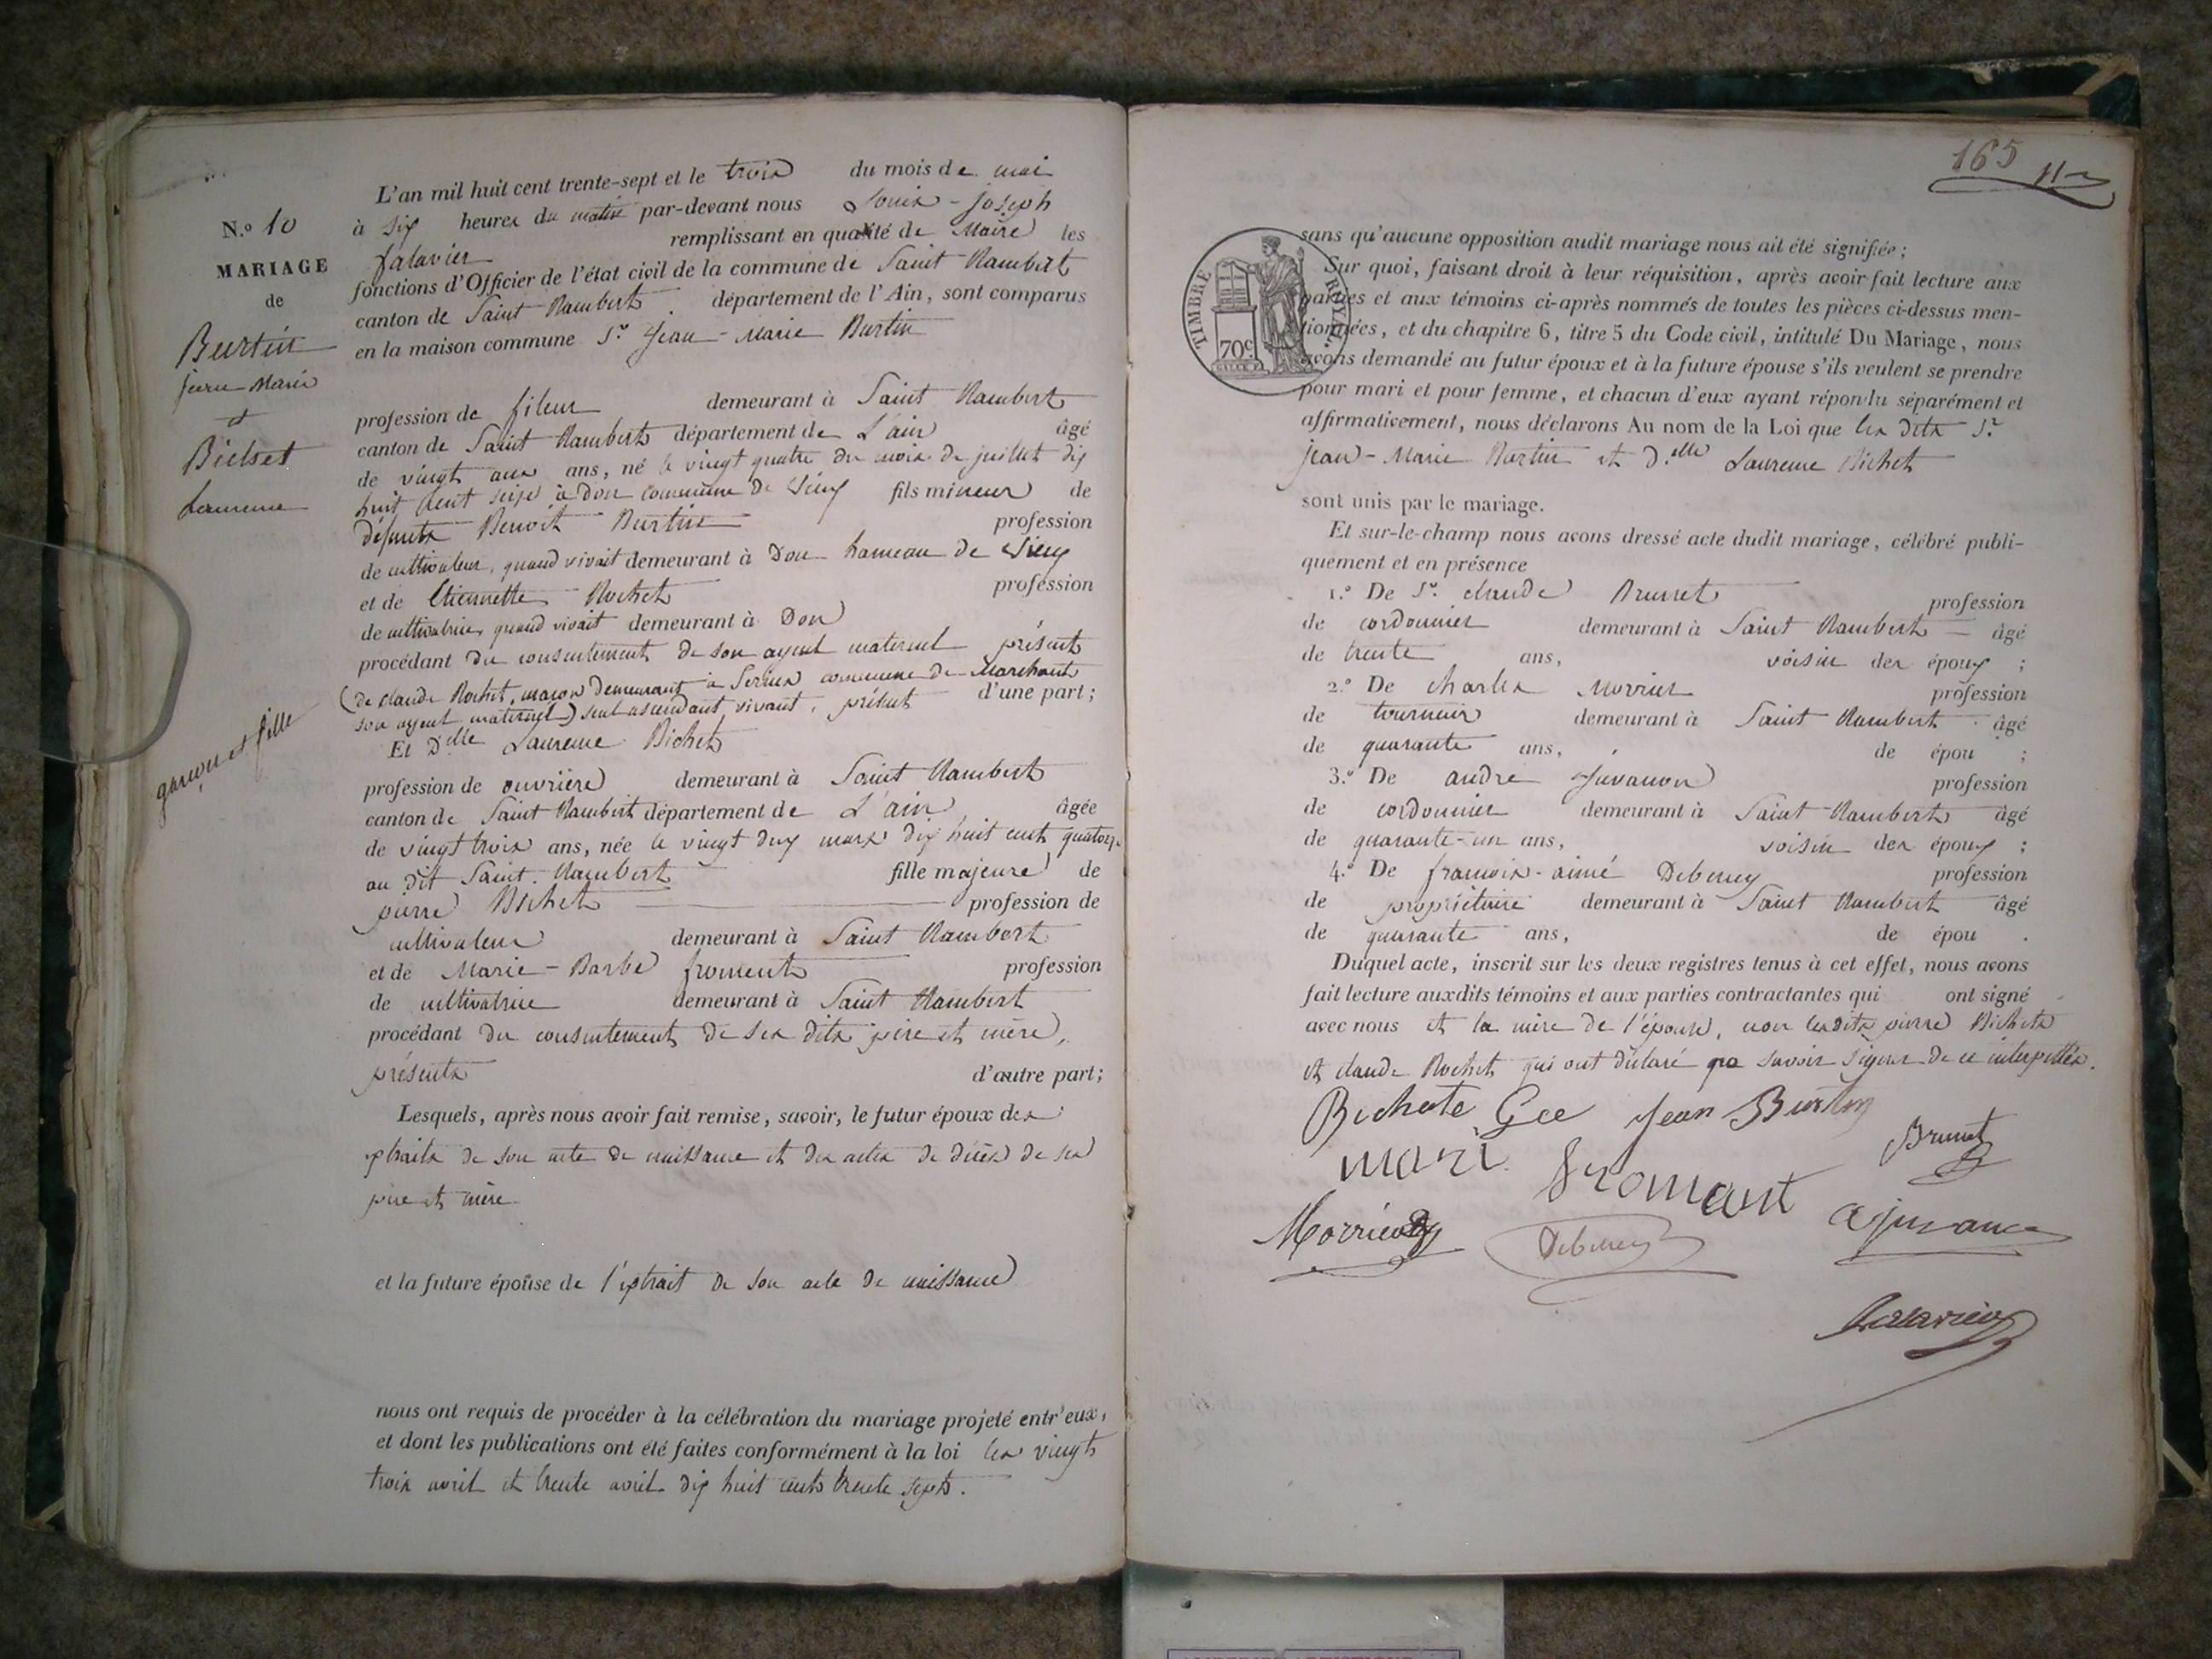 N.o 10
MARIAGE
de
Burtin
jean Marie
et
Bichet
Laurence
garçon et fille
L'an mil huit cent trente-sept et le trois du mois de mai
à six heures du matin par-devant nous Louis-Joseph
falavier remplissant en qualité de Maire les
fonctions d'Officier de l'état civil de la commune de Saint Rambert
canton de Saint Rambert département de l'Ain, sont comparus
en la maison commune Sr. Jean-Marie Burtin
profession de fileur demeurant à Saint Rambert
canton de Saint Rambert département de L'ain âgé
de vingt ans, né le vingt quatre du mois de juillet dix
huit cent seize à Don commune de Vieu fils mineur de
défunts Benoit Burtin profession
de cultivateur, quand vivait demeurant à Don hameau de Vieu
et de Etiennette Rochet profession
de cultivatrice, quand vivait demeurant à Don
procédant du consentement de son ayeul maternel présent
(de claude Rochet, maçon demeurant à commune de
son ayeul maternel) seul ascendant vivant, présent d'une part;
Et Dlle Laurence Bichet
profession de ouvrière demeurant à Saint Rambert
canton de Saint Rambert département de L'ain âgée
de vingt trois ans, née le vingt deux mars dix huit cent quatorze
au dit Saint Rambert fille majeure de
pierre Bichet profession de
cultivateur demeurant à Saint Rambert
et de Marie-Barbe froment profession
de cultivatrice demeurant à Saint Rambert
procédant du consentement de ses dits père et mère,
présents d'autre part;
Lesquels, après nous avoir fait remise, savoir, le futur époux des
extraits de son acte de naissance et des actes de décès de ses
père et mère
et la future épouse de l'extrait de son acte de naissance
nous ont requis de procéder à la célébration du mariage projeté entr'eux,
et dont les publications ont été faites conformément à la loi les vingt
trois avril et trente avril dix huit cent trente sept.
165
TIMBRE ROYAL
70c
sans qu'aucune opposition audit mariage nous ait été signifiée;
Sur quoi, faisant droit à leur réquisition, après avoir fait lecture aux
parties et aux témoins ci-après nommés de toutes les pièces ci-dessus men-
tionnées, et du chapitre 6, titre 5 du Code civil, intitulé Du Mariage, nous
avons demandé au futur époux et à la future épouse s'ils veulent se prendre
pour mari et pour femme, et chacun d'eux ayant répondu séparément et
affirmativement, nous déclarons Au nom de la Loi que les dits Sr.
jean-Marie Burtin et D.elle Laurence Bichet
sont unis par le mariage.
Et sur-le-champ nous avons dressé acte dudit mariage, célébré publi-
quement et en présence
1.o De Sr. claude Brunet profession
de cordonnier demeurant à Saint Rambert âgé
de trente ans, voisin des époux ;
2.o De charles Morrier profession
de tourneur demeurant à Saint Rambert âgé
de quarante ans, de épou ;
3.o De andré Juvanon profession
de cordonnier demeurant à Saint Rambert âgé
de quarante-un ans, voisin des époux ;
4.o De françois-aimé Debeney profession
de propriétaire demeurant à Saint Rambert âgé
de quarante ans, de épou .
Duquel acte, inscrit sur les deux registres tenus à cet effet, nous avons
fait lecture auxdits témoins et aux parties contractantes qui ont signé
avec nous et la mère de l'épouse, non lesdits pierre Bichet
et claude Rochet qui ont déclaré ne savoir signer de ce interpellés.
Bichete Jean Burtin
Brunet
mari fromant
Morrier Debeney ajuvanon
falavier